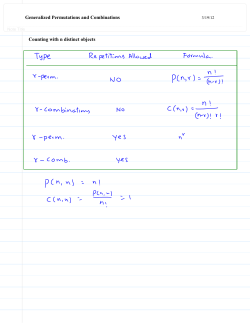 Generalized Permutations and Combinations
Counting with n distinct objects
Type Repetitions Allowed Formula
r-perm. NO P(n,r) = n! / (n-r)!
r-combinations NO C(n,r) = n! / (n-r)! r!
r-perm. yes n^r
r-comb. yes
P(n,n) = n!
C(n,n) = P(n,n) / n! = 1